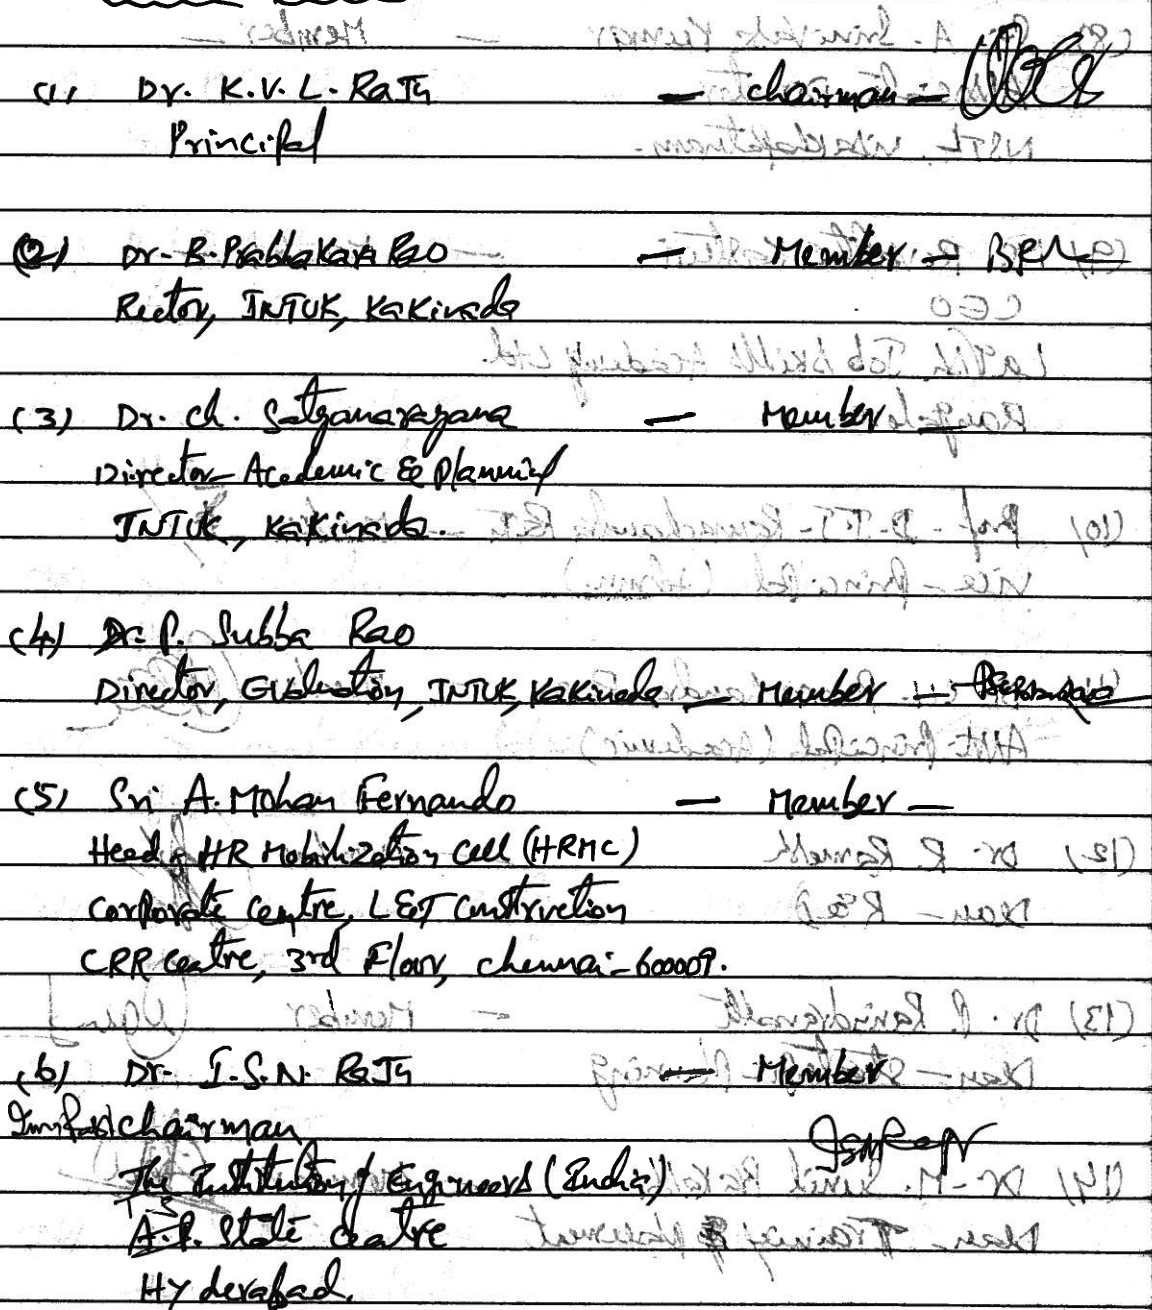 (1) Dr. K.V.L. Raju — chairman —
Principal
(2) Dr. B. Prabhakara Rao — Member —
Rector, JNTUK, Kakinada
(3) Dr. Ch. Satyanarayana — Member —
Director - Academic & Planning
JNTUK, Kakinada.
(4) Dr. P. Subba Rao
Director, Evaluation, JNTUK, Kakinada — Member —
(5) Sri A. Mohan Fernando — Member —
Head of HR Mobilization Cell (HRMC)
Corporate Centre, L&T Construction
CRR Centre, 3rd Floor, Chennai-600009.
(6) Dr. I.S.N. Raju — Member
Imm. Past chairman
The Institution of Engineers (India)
T.S.
A.P. State Centre
Hyderabad.